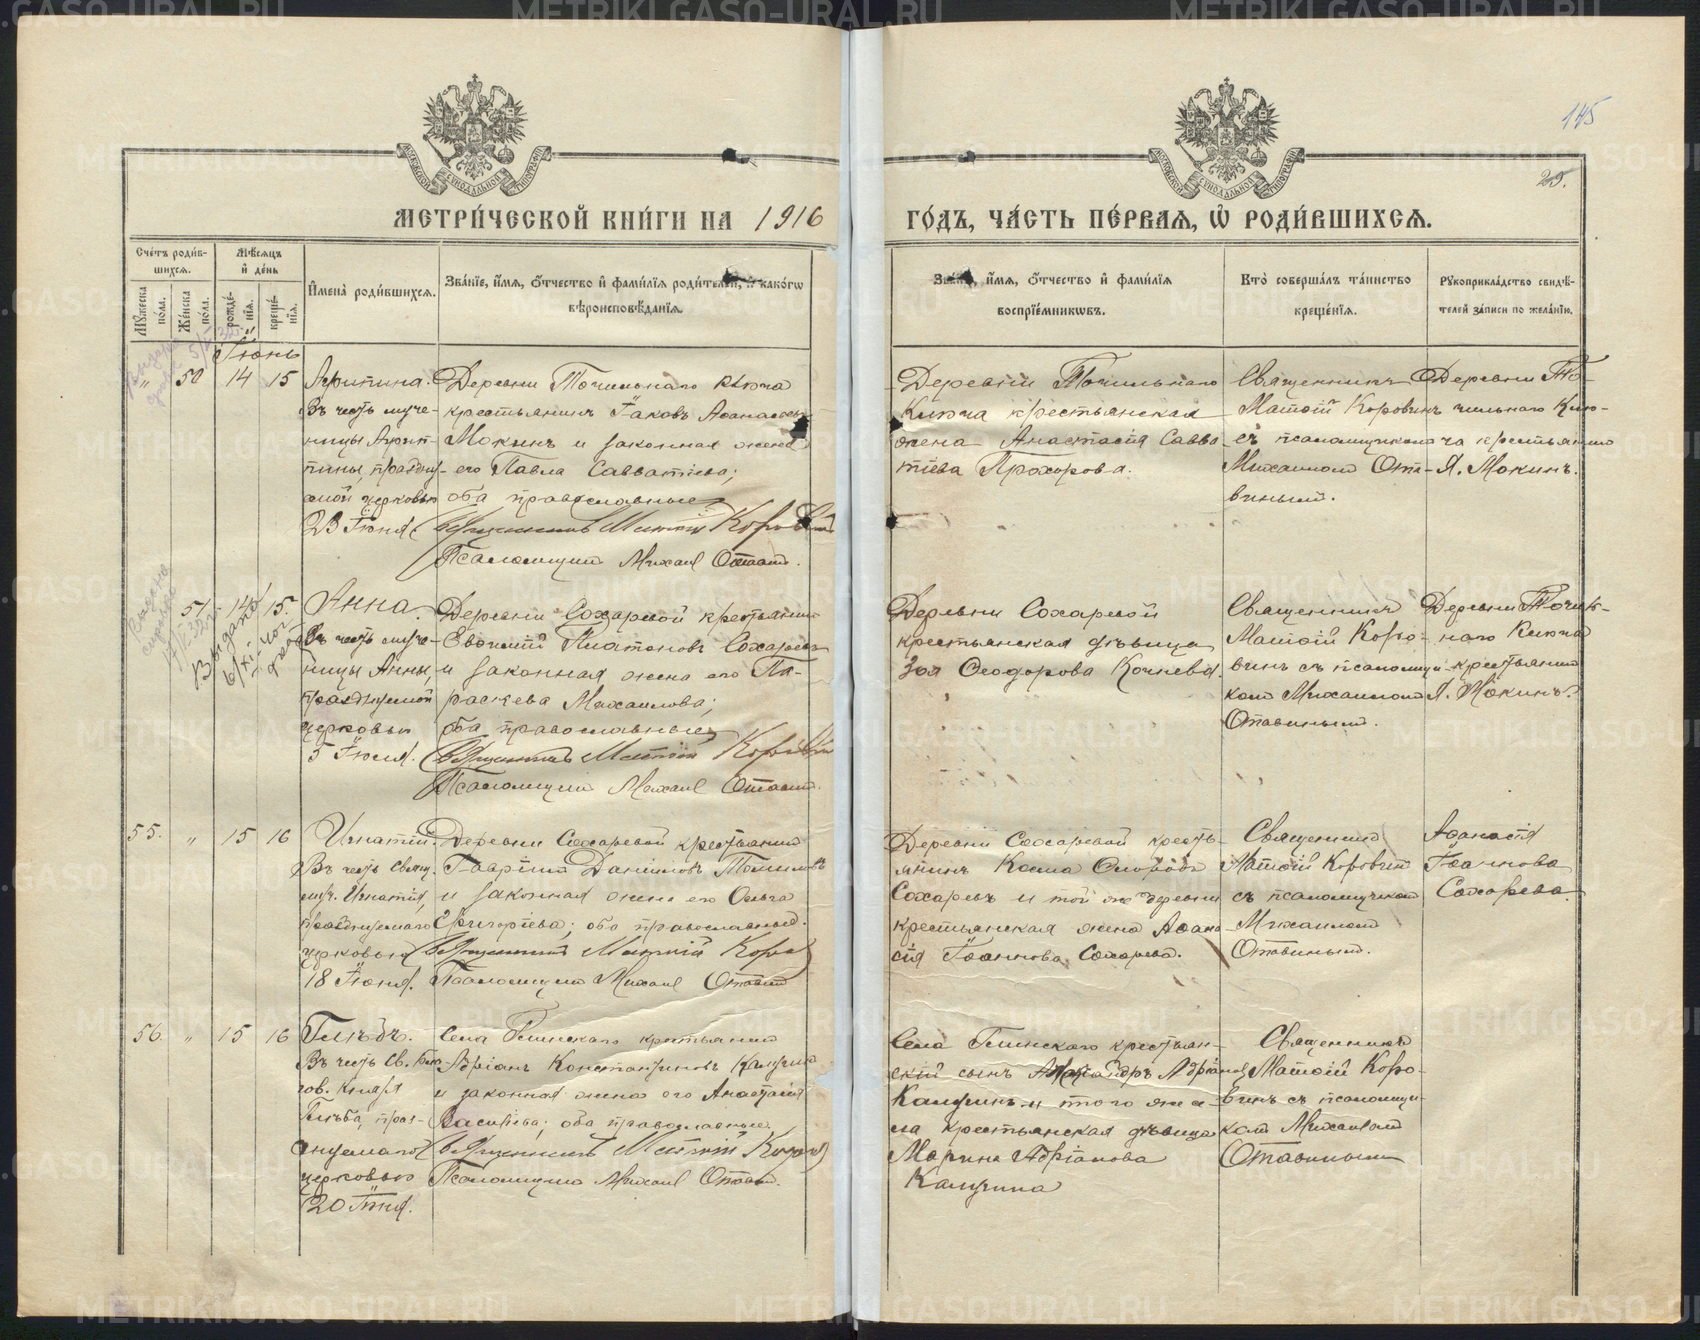 145
25.
МОСКОВСКОЙ СѴНОДАЛЬНОЙ ТИПОГРАФІИ
МЕТРИ́ЧЕСКОЙ КНИ́ГИ НА 1916
ГО́ДЪ, ЧА́СТЬ ПЕ́РВАЯ, Ѡ РОДИ́ВШИХСЯ.
Сче́тъ роди́в-
шихся.
Мѣ́сяцъ
и де́нь
Мꙋ́жеска по́ла.
Же́нска по́ла.
рожде́-
нія.
креще́-
нія.
И́мена̀ роди́вшихся.
Зва́ніе, и́мя, о́тчество и фами́лія роди́телей, и како́гѡ
вѣроисповѣ́данія.
Зва́ніе, и́мя, о́тчество и фами́лія
воспріе́мникѡвъ.
Кто̀ соверша́лъ та́инство
креще́нія.
Рꙋкоприкла́дство свидѣ́-
телей за́писи по жела́нію.
Іюнь
„ 50 14 15
Агрипина.
Въ честь муче-
ницы Агрип-
пины, праздну-
емой церковью
23 Іюня.
Деревни Точильнаго ключа
крестьянинъ Іаковъ Аѳанасьевъ
Мокинъ и законная жена
его Павла Савватіева;
оба православные
Священникъ Матѳій Коровинъ
Псаломщикъ Михаил Отавин.
Деревни Точильнаго
Ключа крестьянская
жена Анастасія Савва-
тіева Прохорова.
Священникъ
Матѳій Коровинъ
съ псаломщикомъ
Михаиломъ Ота-
винымъ.
Деревни То-
чильнаго Клю-
ча крестьянинъ
Я. Мокинъ.
51 14 15.
Анна.
Въ честь муче-
ницы Анны,
празднуемой
церковью
5 Іюля.
Деревни Сохаревой крестьянинъ
Евѳимій Платоновъ Сохаревъ
и законная жена его Па-
раскева Михаилова;
оба православные
Священникъ Матѳій Коровинъ
Псаломщикъ Михаил Отавин.
Деревни Сохаревой
крестьянская дѣвица
Зоя Ѳеодорова Кочнева.
Священникъ
Матѳій Коро-
винъ съ псаломщи-
комъ Михаиломъ
Отавинымъ.
Деревни Точиль-
наго Ключа
крестьянинъ
Я. Мокинъ.
55. „ 15 16
Игнатій
Въ честь Свящ.
муч. Игнатія,
празднуемаго
церковью
18 Іюня.
Деревни Сохаревой крестьянинъ
Гавріилъ Даніиловъ Томиловъ
и законная жена его Ольга
Григорьева; оба православные.
Священникъ Матѳій Коровин
Псаломщикъ Михаил Отавин
Деревни Сохаревой кресть-
янинъ Косма
Сохаревъ и той же деревни
крестьянская жена Аѳана-
сія Іоаннова Сохарева.
Священникъ
Матѳій Коровин
съ псаломщикомъ
Михаиломъ
Отавинымъ.
Аѳанасія
Іоаннова
Сохарева
56. „ 15 16
Глѣбъ.
Въ честь Св. бла-
гов. Князя
Глѣба, праз-
днуемаго
церковью
20 Іюня.
Села Глинскаго крестьянинъ
Адріанъ Константиновъ Калугинъ
и законная жена его Анастасія
Васильева; оба православные.
Священникъ Матѳій Коровин
Псаломщикъ Михаил Отавин.
Села Глинскаго крестьян-
скій сынъ Александръ Адріановъ
Калугинъ и того же се-
ла крестьянская дѣвица
Марина Адріанова
Калугина
Священникъ
Матѳій Коро-
винъ съ псаломщи-
комъ Михаиломъ
Отавинымъ
METRIKI.GASO-URAL.RU